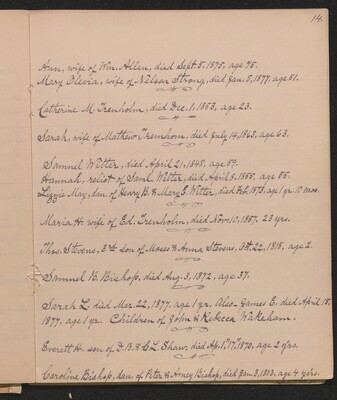 14.
Ann, wife of Wm. Allen, died Sept. 5, 1875, age 75.
Mary Olevia, wife of Nelson Strong, died Jan. 5, 1877, age 51.
Catherine M. Trenholm, died Dec. 1, 1853, age 23.
Sarah, wife of Mathew Trenhom, died July 14, 1863, age 63.
Samuel Witter, died April 21, 1848, age 59.
Hannah, relist of Saml Witter, died April 8, 1855, age 55.
Lizzie May, dau. of Henry B. & Mary E. Witter, died Feb. 1873, age 1 yr. 10 mos.
Maria H. wife of Ed. Trenholm, died Nov. 10, 1857. 23 yrs.
Thos. Stevens, 3d son of Moses & Anna Stevens, Oct. 22, 1818, age 2.
Samuel B. Bishop, died Aug. 3, 1872, age 37.
Sarah L. died Mar. 22, 1877, age 1 yr. Also James E. died April 18,
1877, age 1 yr. Children of John & Rebecca Wakeham.
Everett H. son of D. B. & C L Shaw, died Apr. 17, 1870, age 2 yrs.
Caroline Bishop, dau. of Peter & Amey Bishop, died Jan. 3, 1813, age 4 yrs.